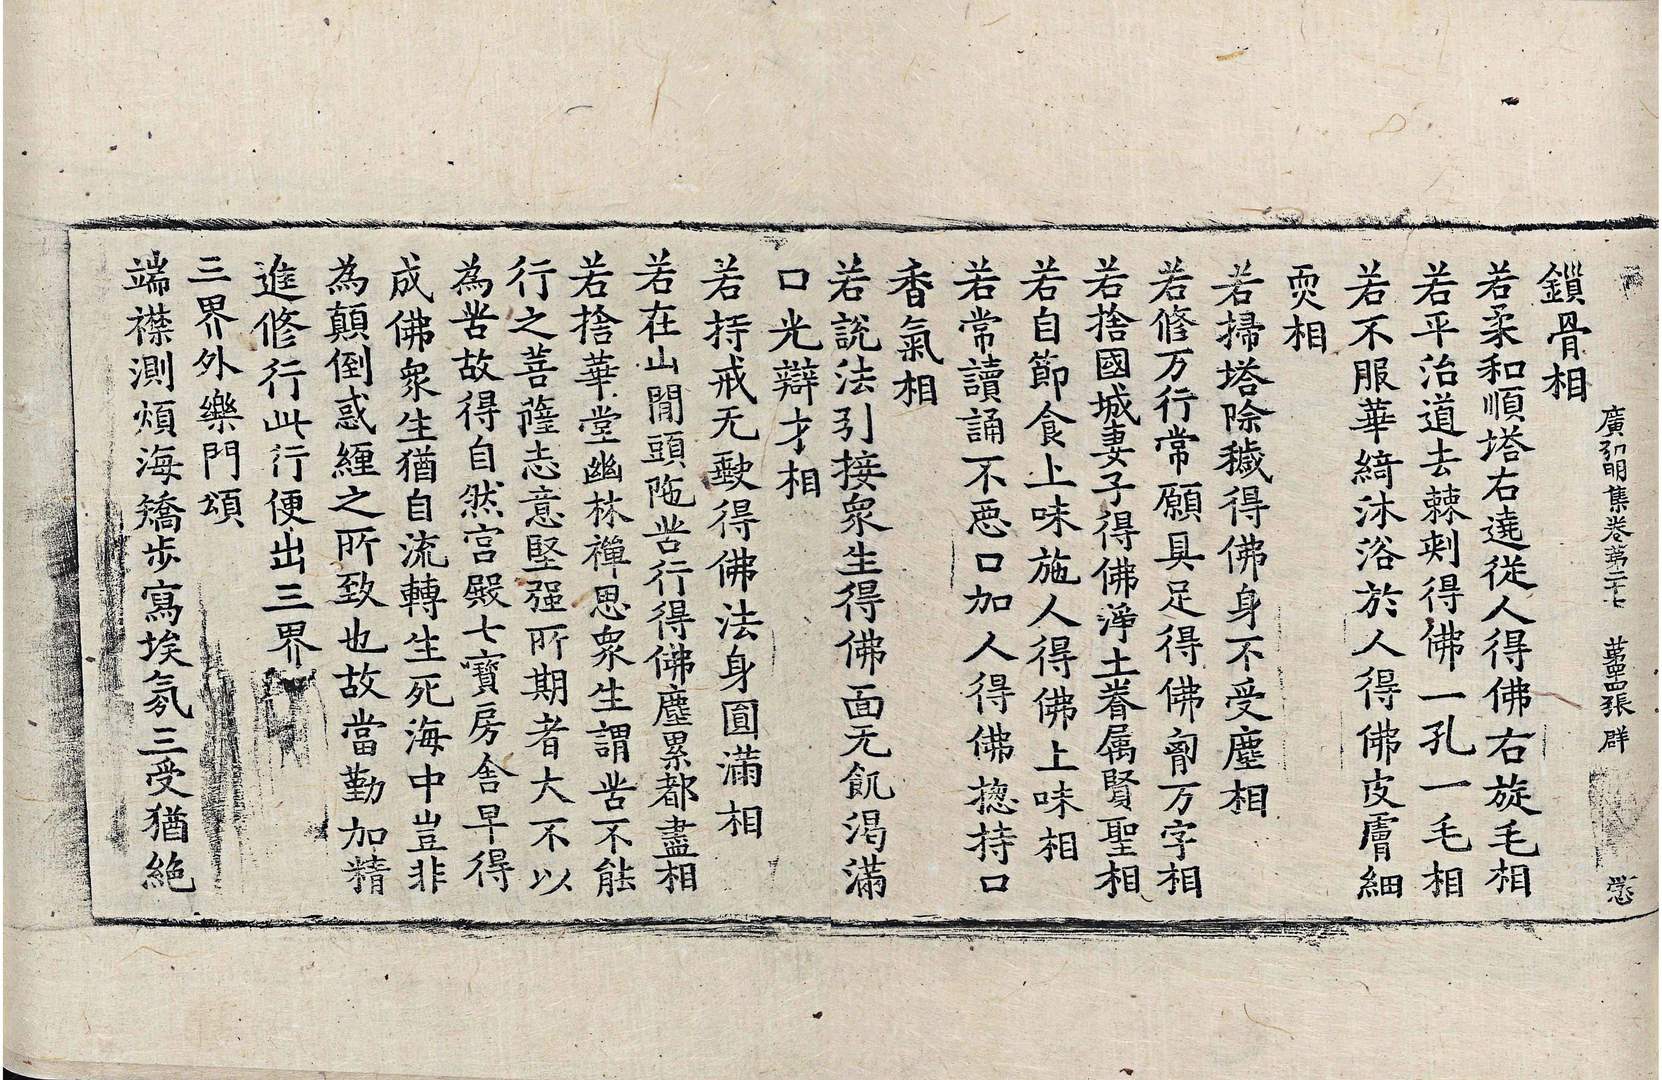 廣弘明集卷第二十七 第四張 群
鎖骨相
若柔和順塔右遶從人得佛右旋毛相
若平治道去棘刺得佛一孔一毛相
若不服華綺沐浴於人得佛皮膚細
耎相
若掃塔除穢得佛身不受塵相
若修万行常願具足得佛𦙄万字相
若捨國城妻子得佛淨土眷属賢聖相
若自節食上味施人得佛上味相
若常讀誦不惡口加人得佛揔持口
香氣相
若說法引接衆生得佛面无飢渴滿
口光辯才相
若持戒无𡙇得佛法身圓滿相
若在山閒頭陁苦行得佛塵累都盡相
若捨華堂幽林禪思衆生謂苦不能
行之菩薩志意堅强所期者大不以
為苦故得自然宫殿七寶房舍早得
成佛衆生猶自流轉生死海中豈非
為顛倒惑纏之所致也故當勤加精
進修行此行便出三界
三界外樂門頌
端襟測煩海矯步寫埃氛三受猶絶